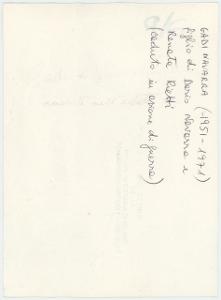 GADI NAVARRA (-1951-1971)
figlio di Dario Navarra e
Renata Rietti
(caduto in azione di guerra)